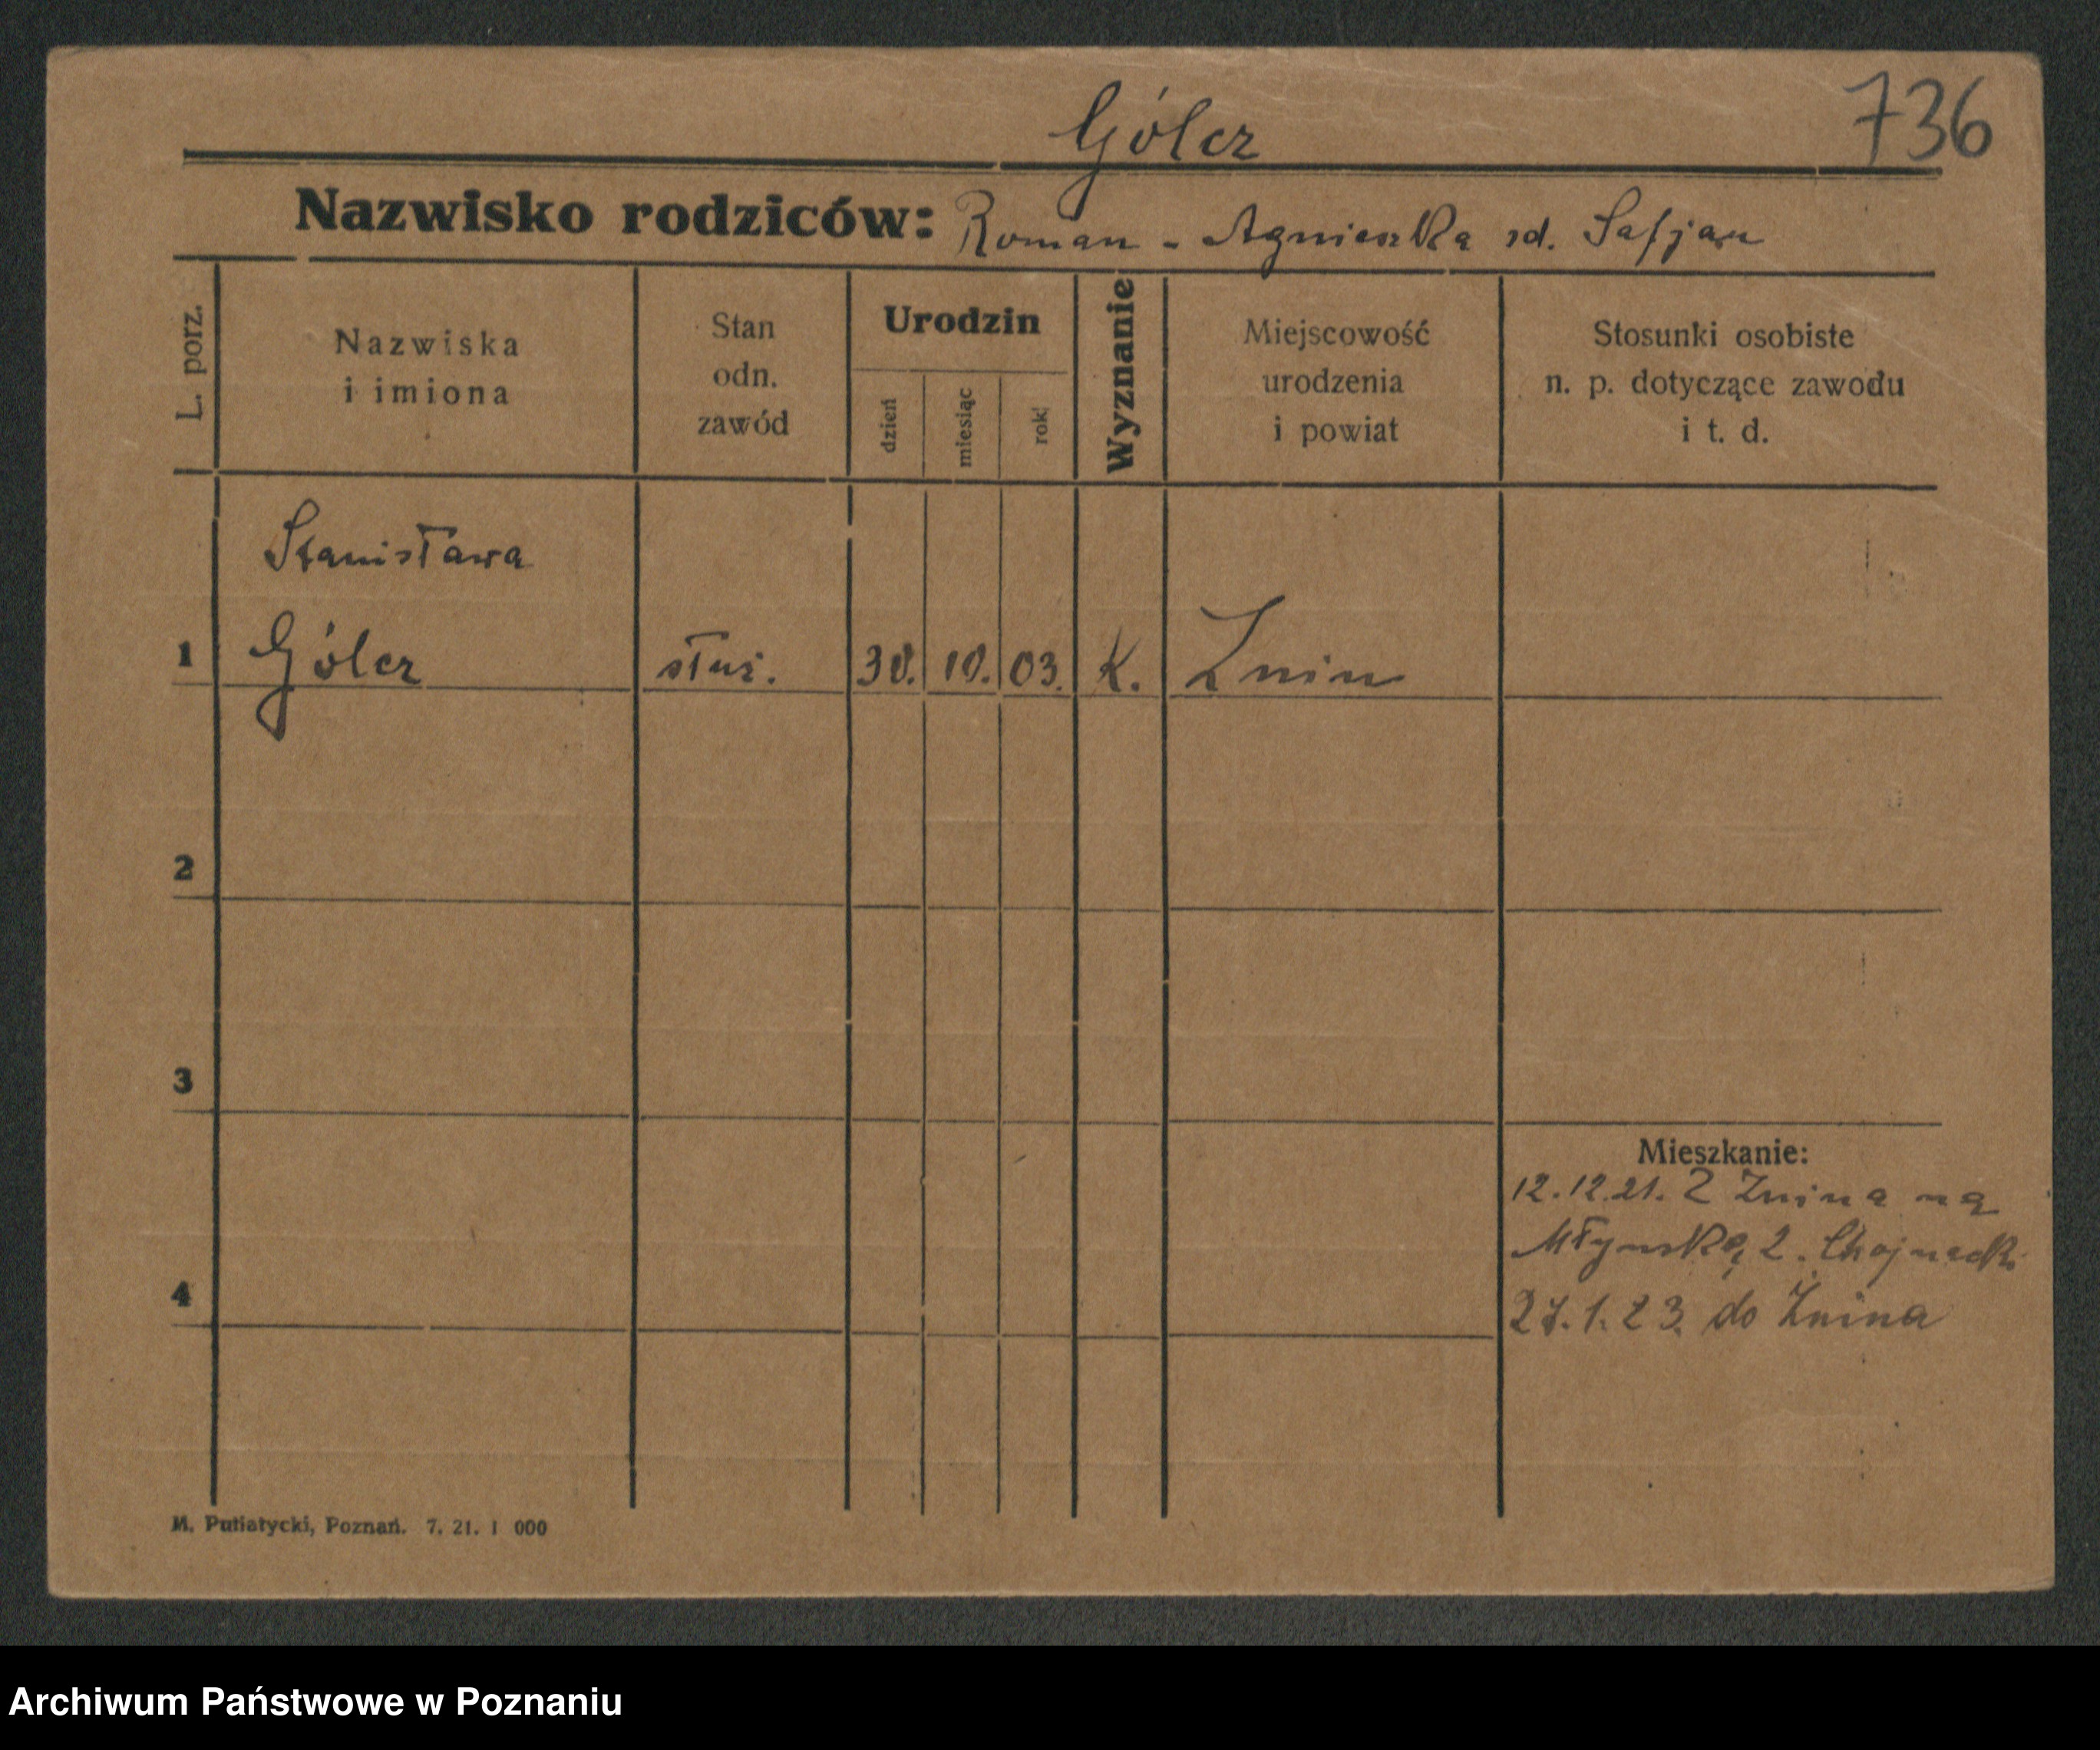 736
Gólcz
Nazwisko rodziców: Roman - Agnieszka zd. Safjan
L. porz.
Nazwiska
i imiona
Stan
odn.
zawód
Urodzin
dzień
miesiąc
rok
Wyznanie
Miejscowość
urodzenia
i powiat
Stosunki osobiste
n. p. dotyczące zawodu
i t. d.
Stanisława
1 Gólcz służ. 30. 10. 03. K. Żnin
2
3
Mieszkanie:
12.12.21. Z Żnina na
Młyńską 2. Chojnacki
4
27.1.23. do Żnina
M. Putiatycki, Poznań. 7. 21. 1 000
Archiwum Państwowe w Poznaniu